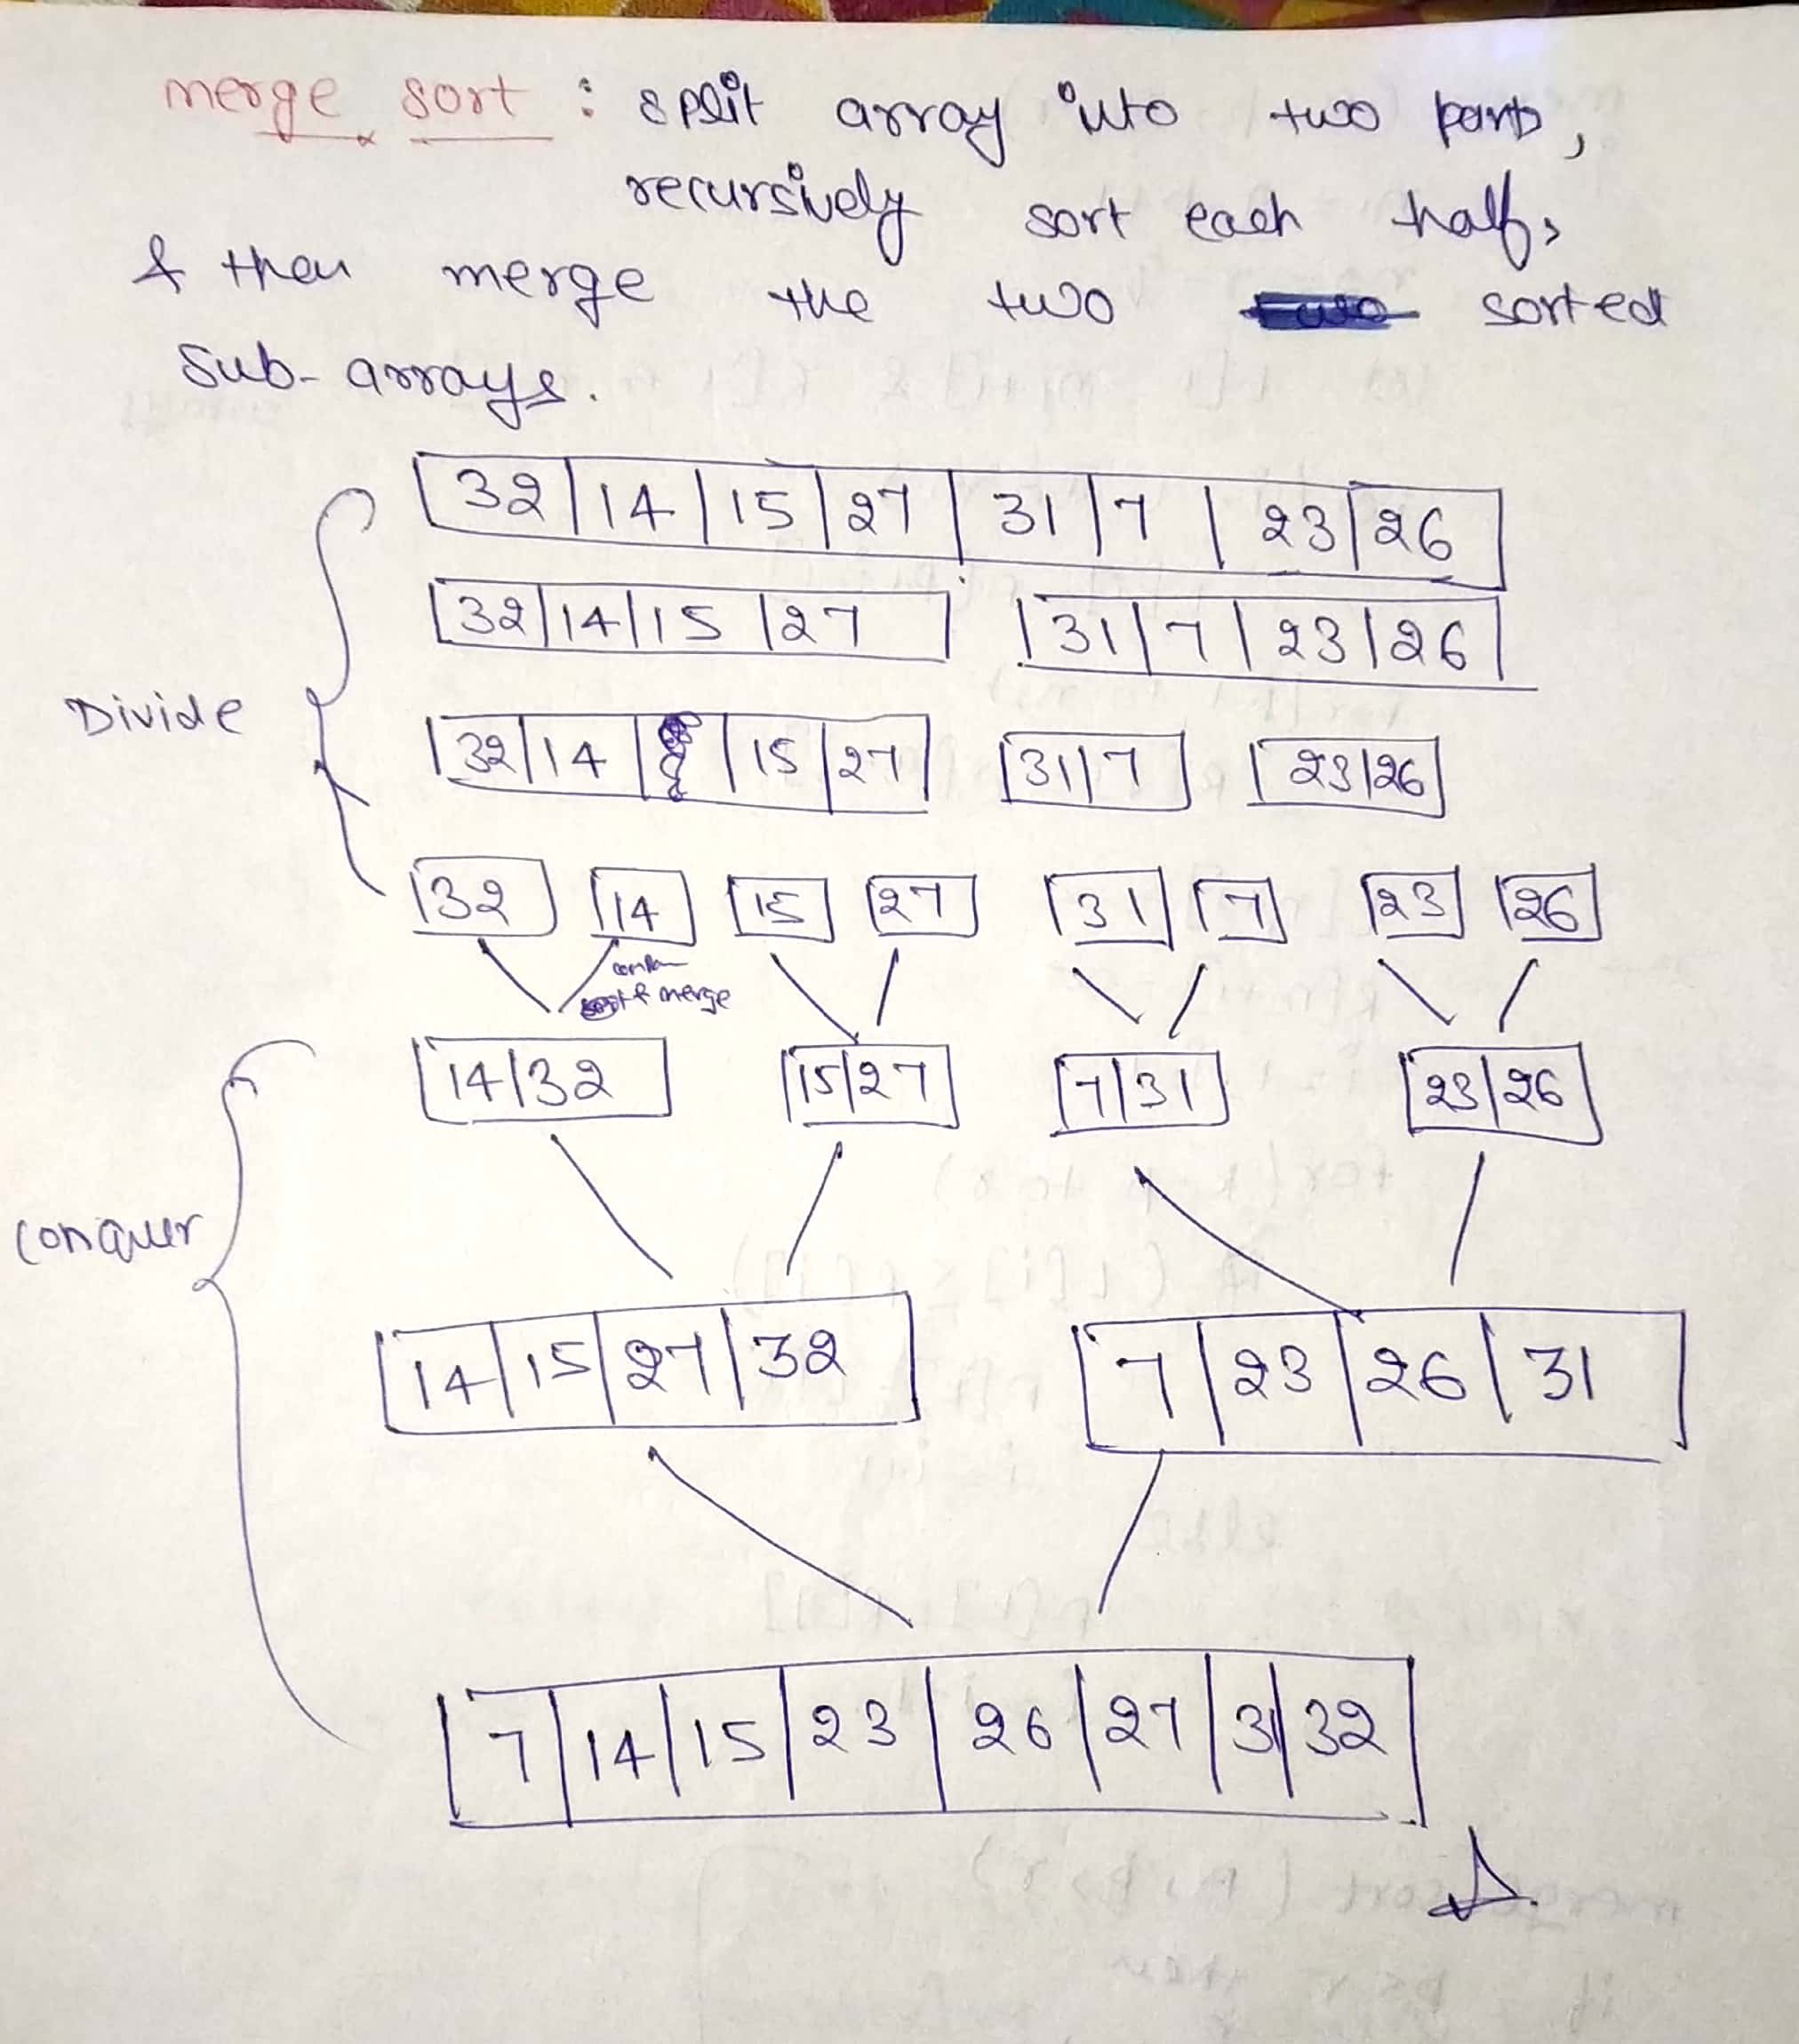 merge sort : split array into two parts,
recursively sort each half,
& then merge the two sorted
Sub-arrays.
32 | 14 | 15 | 27 | 31 | 7 | 23 | 26
32 | 14 | 15 | 27   31 | 7 | 23 | 26
Divide
32 | 14 | 15 | 27   31 | 7   23 | 26
32   14   15   27   31   7   23   26
& merge
14 | 32   15 | 27   7 | 31   23 | 26
conquer
14 | 15 | 27 | 32   7 | 23 | 26 | 31
7 | 14 | 15 | 23 | 26 | 27 | 31 | 32